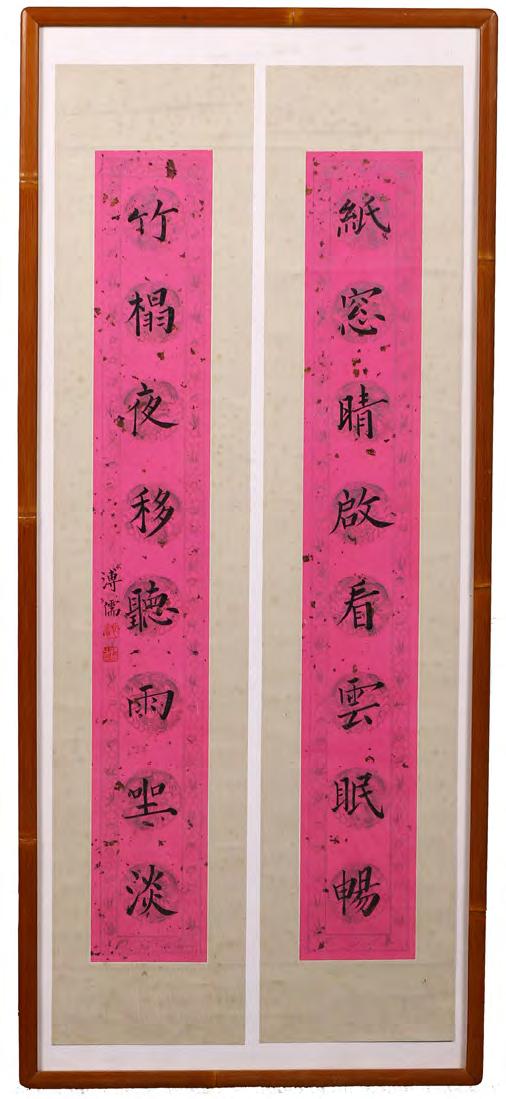 紙窓晴啟看雲眠暢
竹榻夜移聽雨坐淡
溥儒